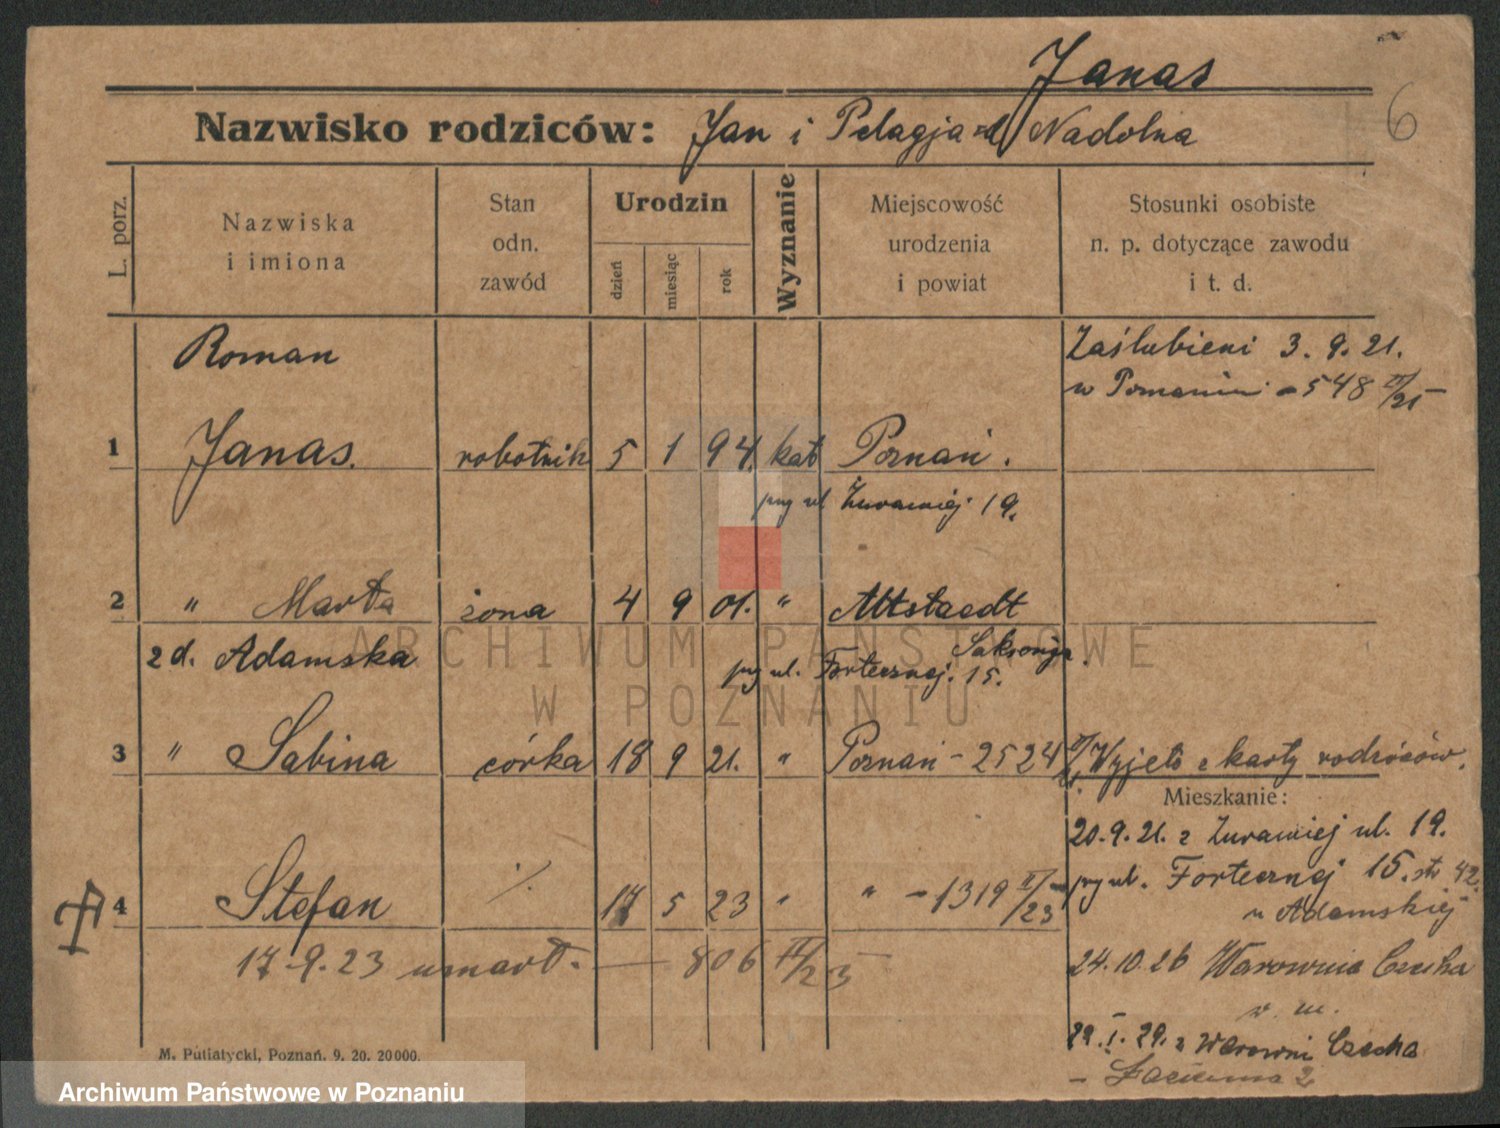 Janas
6
Nazwisko rodziców: Jan i Pelagja zd Nadolna
L. porz.
Nazwiska i imiona
Stan odn. zawód
Urodzin
dzień
miesiąc
rok
Wyznanie
Miejscowość urodzenia i powiat
Stosunki osobiste n. p. dotyczące zawodu i t. d.
Roman
Zaślubieni 3. 9. 21.
w Poznaniu - 548 II/21
1 Janas. robotnik 5 1 94. kat Poznań.
przy ul. Żurawiej 19.
2 " Marta żona 4 9 01. " Altstaedt
Saksonja.
zd. Adamska przy ul. Fortecznej 15.
3 " Sabina córka 18 9 21. " Poznań - 2524 II/21 Wyjęto z karty rodziców.
Mieszkanie:
20.9.21. z Żurawiej ul. 19.
przy ul. Fortecznej 15. 42.
u Adamskiej
4 Stefan ./. 17 5 23 " " - 1319 II/23
17.9.23 umarł. — 806 II/23 —
24.10.26 Warownia Czecha
w m.
29.I.29. z Warowni Czecha
- 2
M. Putiatycki, Poznań. 9. 20. 20000.
ARCHIWUM PAŃSTWOWE
W POZNANIU
Archiwum Państwowe w Poznaniu